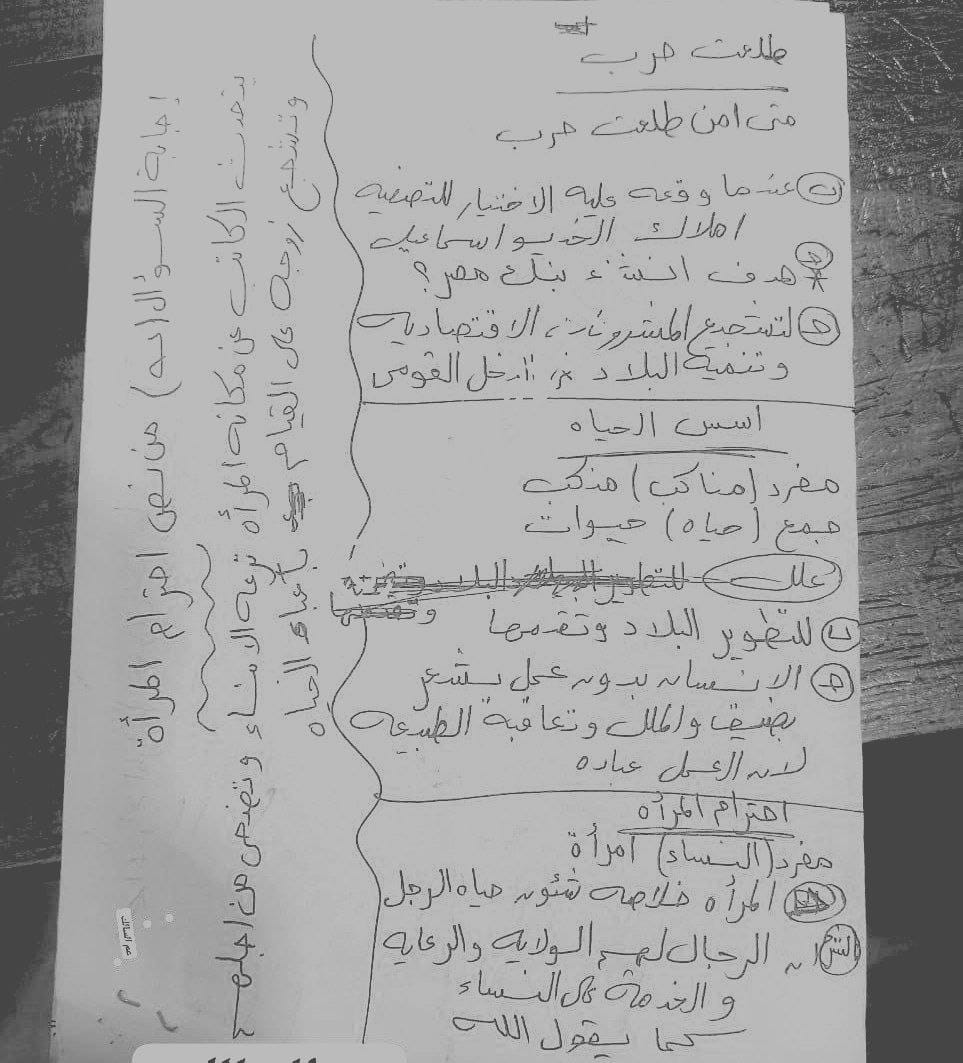 طلعت حرب
متى امن طلعت حرب
ب عندما وقعه عليه الاختيار للتصفيه
املاك الخديو اسماعيل
هدف انشاء بنك مصر؟
لتشجيع المشروعات الاقتصاديه
وتنمية البلاد الدخل القومى
اسس الحياه
مفرد (مناكب) منكب
جمع (حياه) حيوات
علل للتطوير البلاد
ب للتطوير البلاد وتقدمها
الانسان بدون عمل يشعر
بضيق والملل وتعاقبة الطبيعه
لان العمل عباده
احترام المرأه
مفرد (النساء) امرأة
المرأه خلاصه شئون حياه الرجل
الشرح ان الرجال لهم الولايه والرعايه
والخدمة على النساء
كما يقول الله
إجابة السؤال من نص احترام المرأة
يتحدث الكاتب عن مكانه المرأه الابناء وتضحى من اجلهم
وتشجع زوجه على القيام بأعباء الحياه
علم السالك